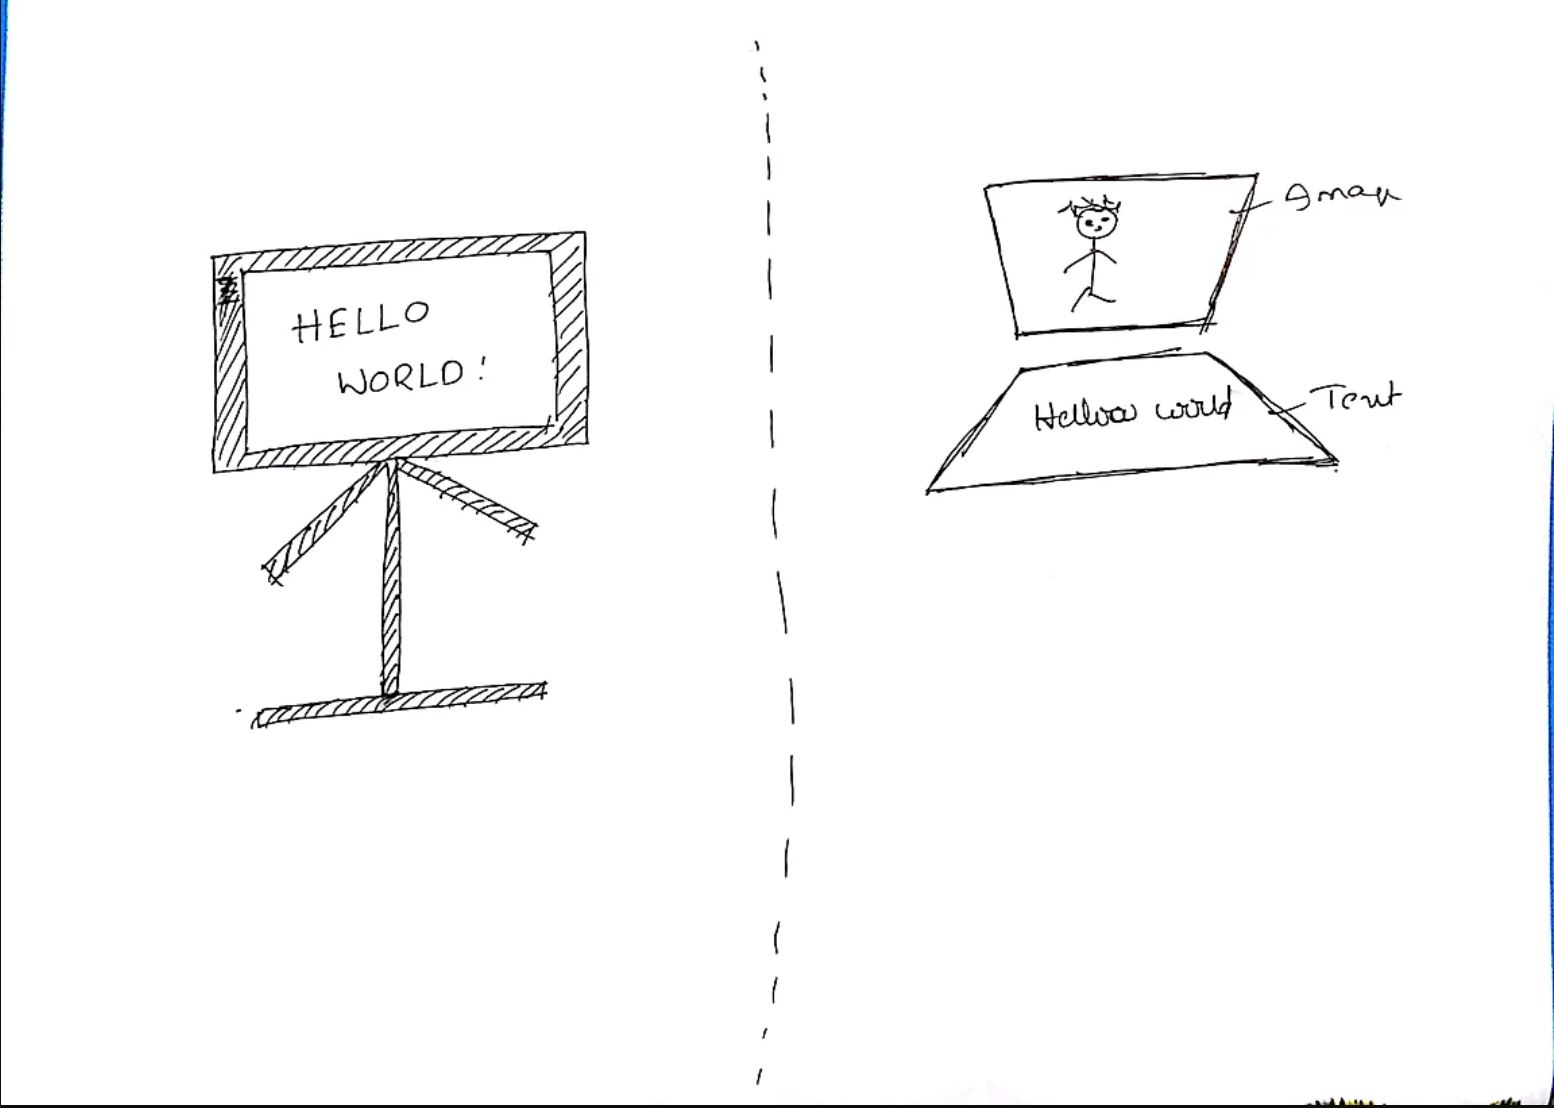 HELLO
WORLD!
Image
Hellow world
Text